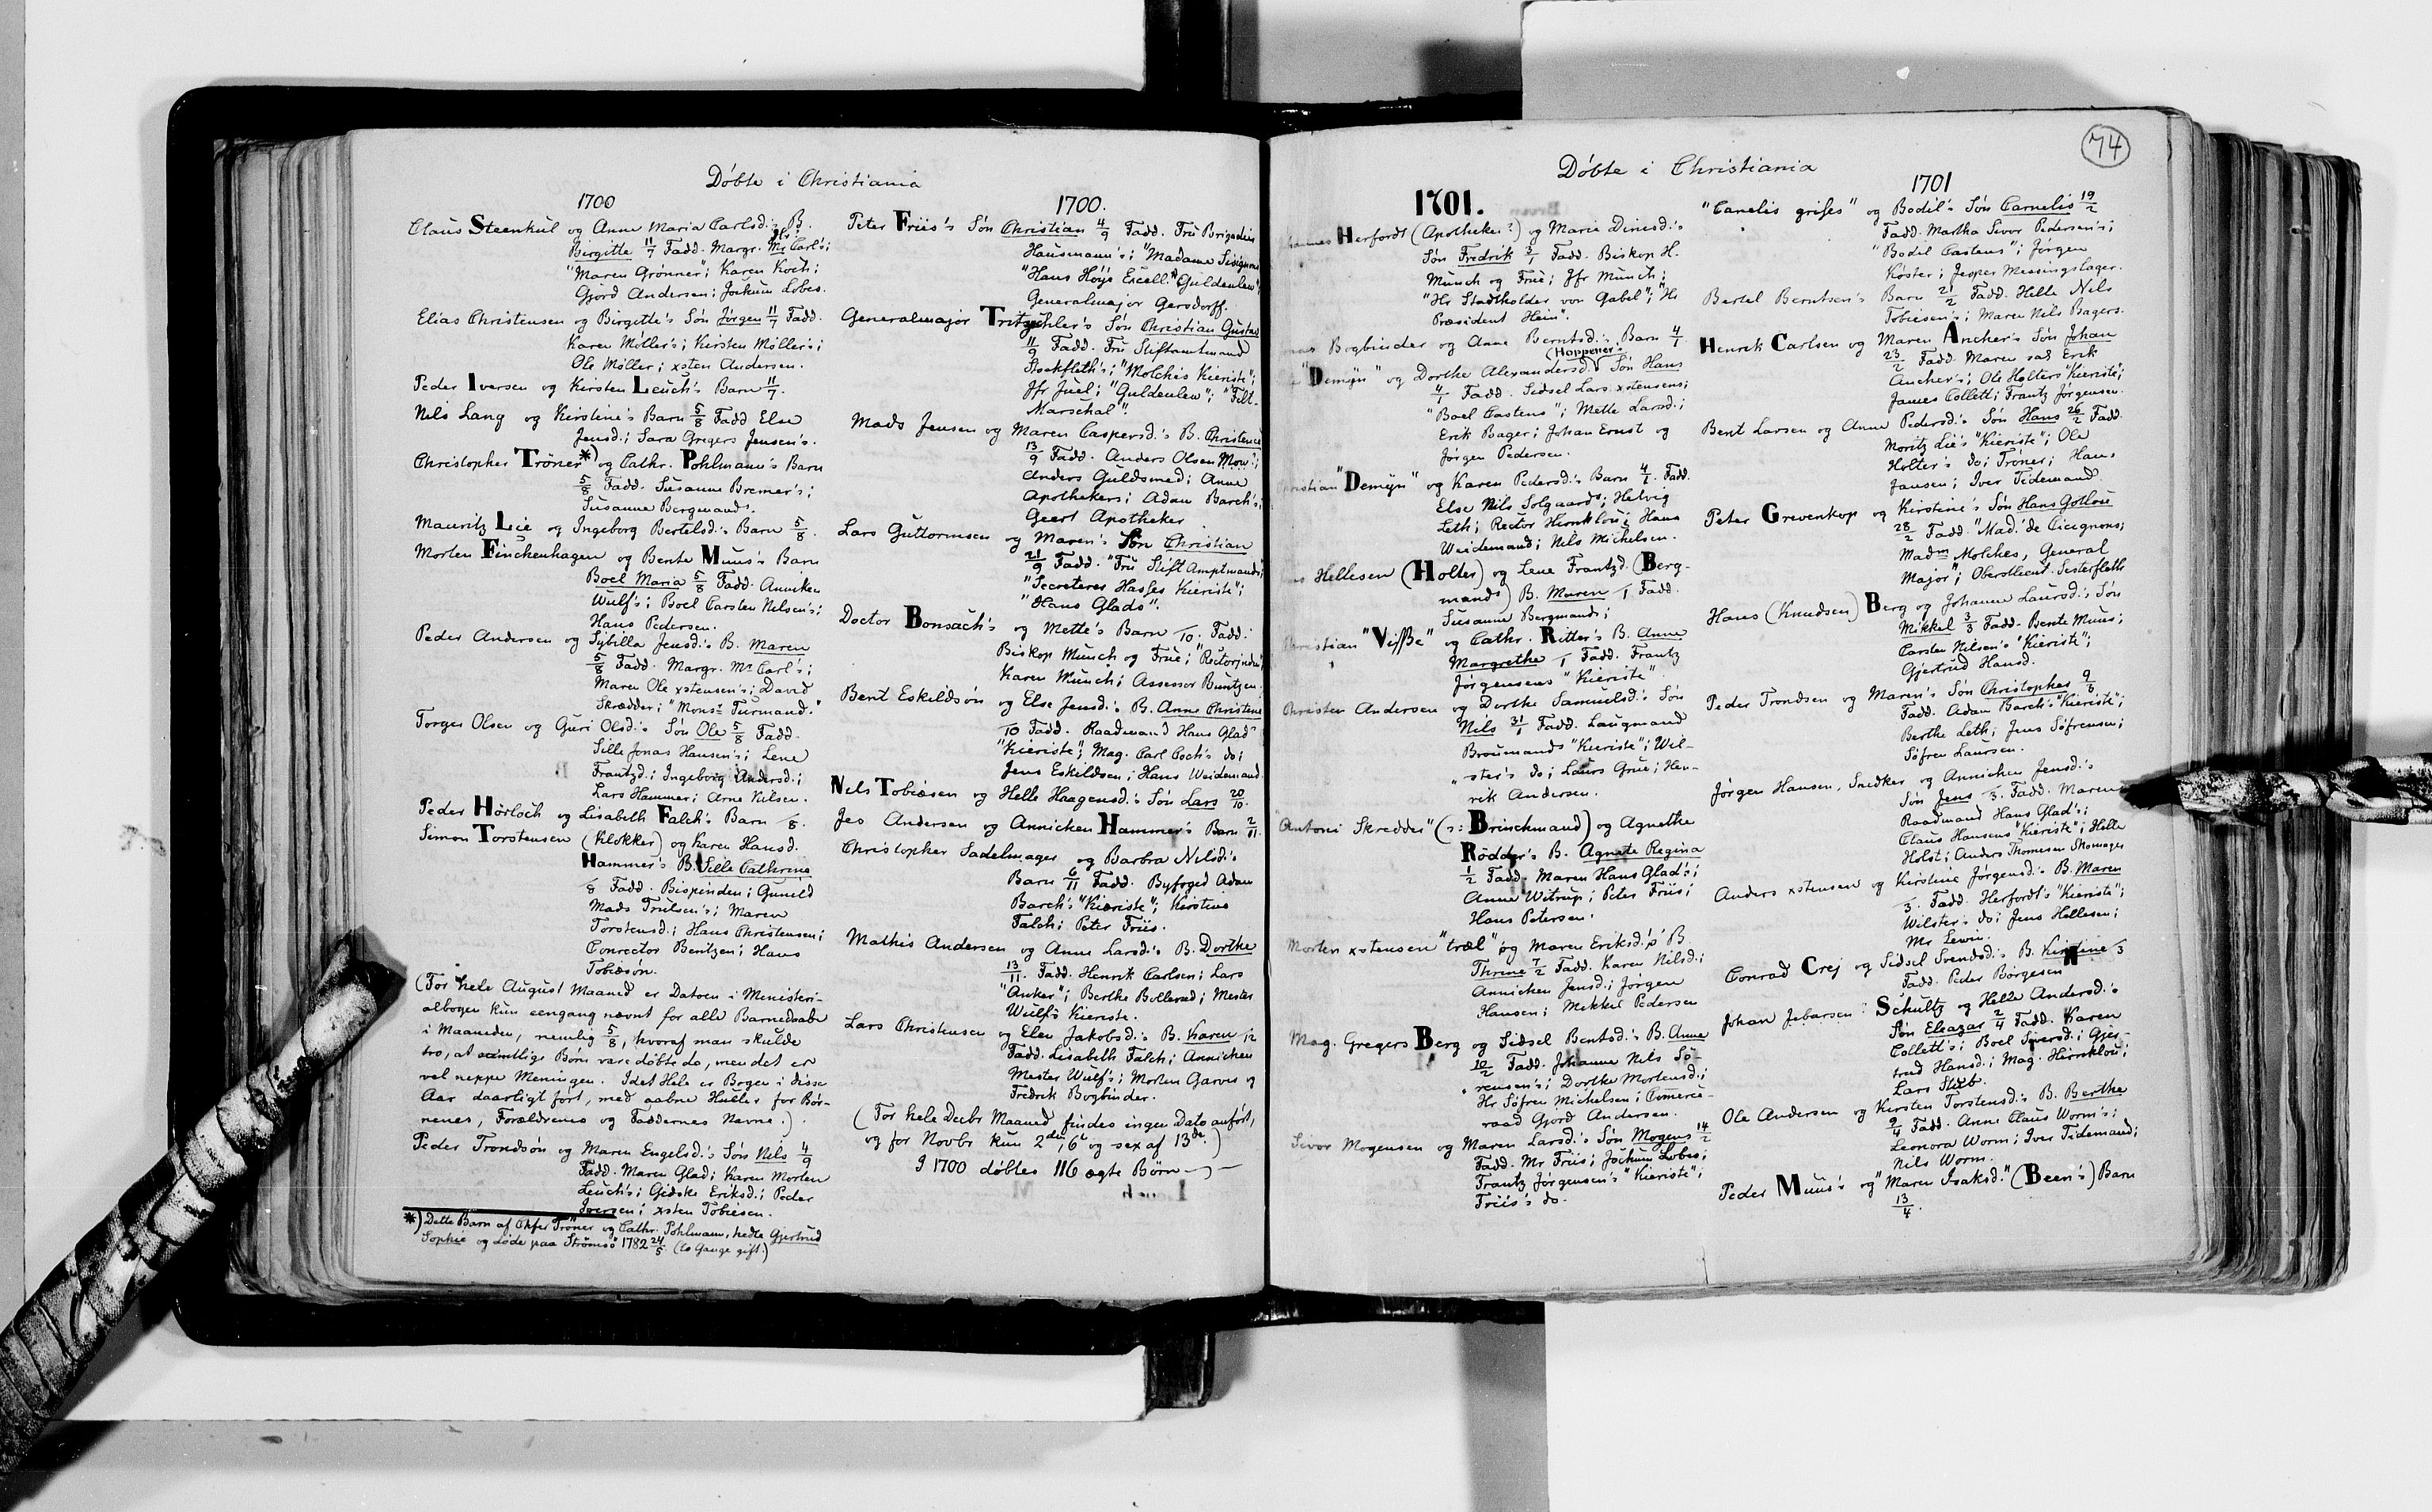 Døbte i Christiania
1700
Claus Steenkul og Anne Maria Carlsd.'s B.
Birgitte 11/7 Fadd. Margr. Mr Carl's;
"Maren Grønner"; Karen Koch;
Gjord Andersen; Jochum Lobes.
Elias Christensen og Birgitte's Søn Jørgen 11/7 Fadd.
Karen Møller's; Kirsten Møller's;
Ole Møller; xsten Andersen.
Peder Iversen og Kirsten Leuch's Barn 11/7.
Nils Lang og Kirstine's Barn 5/8 Fadd Else
Jensd.; Sara Gregers Jensen's.
Christopher Tröner *) og Cathr. Pohlmann's Barn
5/8 Fadd. Susanne Bremer's;
Susanne Bergmands.
Mauritz Lie og Ingeborg Bertelsd.'s Barn 5/8.
Morten Finckenhagen og Bente Muus's Barn
Boel Maria 5/8 Fadd. Anniken
Wulf's; Boel Carsten Nelsen's;
Hans Pedersen.
Peder Andersen og Sybilla Jensd.'s B. Maren
5/8 Fadd. Margr. Mr Carl's;
Maren Ole xstensen's; David
Skrædder; "Monsr Turmand."
Torger Olsen og Guri Olsd.'s Søn Ole 5/8 Fadd.
Sille Jonas Hansen's; Lene
Frantzd.; Ingeborg Andersd.;
Lars Hammer; Arne Nilsen.
Peder Hörloch og Lisabeth Falch's Barn /8.
Simon Torstensen (Klokker) og Karen Hansd.
Hammer's B. Sille Cathrine
/8 Fadd. Bispinden; Gunild
Mads Trulsen's; Maren
Torstensd.; Hans Christensen;
Conrector Bentzen; Hans
Tobiæsøn.
(For hele August Maaned er Datoen i Ministeri-
albogen kun eengang nævnt for alle Barnedaabe
i Maaneden, nemlig 5/8, hvoraf man skulde
tro, at samtlige Børn vare døbte da, men det er
vel neppe Meningen. I det Hele er Bogen i disse
Aar daarligt ført, med aabne Huller for Bør-
nenes, Forældrenes og Faddernes Navne.)
Peder Trondsøn og Maren Engelsd.'s Søn Nils 4/9
Fadd. Maren Glad; Karen Morten
Leuch's; Gidske Eriksd.; Peder
Iversen; xsten Tobiesen.
*) Dette Barn af Chfer Tröner og Cathr. Pohlmann, hedte Gjertrud
Sophie og døde paa Strømsø 1782 24/5 (to Gange gift.)
1700.
Peter Friis's Søn Christian 4/9 Fadd. Fru Brigadier
Hausmann's; "Madame Sisignons
"Hans Høije Excell. Guldenlew";
Generalmajor Gersdorff.
Generalmajor Tritzschler's Søn Christian Gustav
11/9 Fadd. Fru Stiftamtmand
Stockfleth's; "Molches Kieriste";
Jfr Juel; "Guldenlew"; "Felt-
Marschal".
Mads Jensen og Maren Caspersd.'s B. Christence
13/9 Fadd. Anders Olsen Mow's;
Anders Guldsmed; Anne
Apothekers; Adam Barch's;
Geert Apotheker
Lars Guttormsen og Maren's Søn Christian
21/9 Fadd. "Fru Stift Amptmands;
"Secreterer Hasses Kieriste";
"Hans Glads".
Doctor Bonsach's og Mette's Barn /10. Fadd.
Biskop Munch og Frue; "Rectorinden
Karen Munch; Assessor Buntzen.
Bent Eskildsøn og Else Jensd.'s B. Anne Christene
/10 Fadd. Raadmand Hans Glad's
"Kieriste"; Mag. Carl Coch's do;
Jens Eskildsen; Hans Weidemand.
Nels Tobiæsen og Helle Haagensd.'s Søn Lars 20/10.
Jes Andersen og Annicken Hammer's Barn 2/11.
Christopher Sadelmager og Barbra Nilsd.'s
Barn 6/11 Fadd. Byfoged Adam
Barch's "Kieriste"; Kirstine
Falch; Peter Friis.
Mathis Andersen og Anne Larsd.'s B. Dorthe
13/11. Fadd. Henrik Carlsen; Lars
"Anker"; Berthe Bollerud; Mester
Wulfs Kieriste.
Lars Christensen og Elen Jakobsd.'s B. Karen /12
Fadd. Lisabeth Falch; Annichen
Mester Wulf's; Morten Garver og
Fredrik Bogbinder.
(For hele Decbr Maaned findes ingen Dato anført,
og for Novbr kun 2den, 6te og sex af 13de.)
I 1700 døbtes 116 ægte Børn
74
Døbte i Christiania
1701.
Herfordt (Apotheker?) og Marie Dinesd.'s
Søn Fredrik 3/1 Fadd. Biskop H.
Munch og Frue; Jfr Munch;
"Hr Stadtholder von Gabel"; "Hr
Præsident Hein".
Bogbinder og Anne Berntsd.'s Barn 4/1
"Demijn" og Dorthe Alexandersd. (Hoppener's) Søn Hans
4/1 Fadd. Sidsel Lars xstensens;
"Boel Castens"; Mette Larsd.;
Erik Bager; Johan Ernst og
Jørgen Pedersen.
"Demijn" og Karen Pedersd.'s Barn 4/1. Fadd.
Else Nils Solgaards; Helvig
Leth; Rector Hirnklou; Hans
Weidemand; Nils Michelsen.
Hellesen (Holter) og Lene Frantzd. (Berg-
mands) B. Maren /1 Fadd.
Susanne Bergmands;
Christian "Visse" og Cathr. Ritter's B. Anne
Margrethe /1 Fadd. Frantz
Jørgensens "Kieriste".
Christen Andersen og Dorthe Samuelsd.'s Søn
Nils 31/1 Fadd. Laugmand
Broumands "Kieriste"; Wil-
ster's do; Laurs Grue; Hen-
rik Andersen.
"Antoni Skredder" (ɔ: Brinckmand) og Agnethe
Rödder's B. Agnete Regina
1/2 Fadd. Maren Hans Glad's;
Anne Witrup; Peter Friis;
Hans Petersen.
Morten xstensen "træl" og Maren Eriksd.'s B
Thrine 7/2 Fadd. Karen Nilsd.;
Annichen Jensd.; Jørgen
Hansen; Mikkel Pedersen
Mag. Gregers Berg og Sidsel Bentsd.'s B. Anne
10/2 Fadd. Johanne Nils Sö-
rensen's; Dorthe Mortensd.;
Hr Söfren Michelsen; Comerce-
raad Gjord Andersen.
Sivor Mogensen og Maren Larsd.'s Søn Mogens 14/2
Fadd. Mr Friis; Jochum Lobes;
Frantz Jørgensen's "Kieriste";
Friis's do.
1701
"Canelis grises" og Bodil's Søn Carnelis 19/2
Fadd. Martha Sivor Pedersen's;
"Bodil Castens"; Jørgen
Köster; Jesper Messingslager.
Bertel Berntsen's Barn 21/2 Fadd. Helle Nils
Tobiesen's; Maren Nils Bagers.
Henrik Carlsen og Maren Ancher's Søn Johan
23/2 Fadd. Maren sal Erik
Ancher's; Ole Holters "Kieriste";
James Collett; Frantz Jørgensen.
Bent Larsen og Anne Pedersd.'s Søn Hans 26/2 Fadd.
Moritz Lie's "Kieriste"; Ole
Holter's do; Tröner; Hans
Jansen; Iver Tidemand.
Peter Grevenkop og Kirstine's Søn Hans Gotlou
28/2 Fadd. "Mad. de Cicignons;
Madm Molches, General
Major"; Oberstlieut. Sesterfleth
Hans (Knudsen) Berg og Johanne Laursd.'s Søn
Mikkel 3/3 Fadd. Bente Muus;
Carsten Nilsen's "Kieriste";
Gjertrud Hansd.
Peder Trondsen og Maren's Søn Christopher 9/3
Fadd. Adam Barch's "Kieriste";
Berthe Leth; Jens Söfrensen;
Söfren Laursen.
Jørgen Hansen, Snedker og Annichen Jensd.'s
Søn Jens /3. Fadd. Maren
Raadmand Hans Glad's;
Claus Hansens "Kieriste"; Helle
Holst; Anders Thomesen Skomager
Anders xstensen og Kirstine Jørgensd.'s B. Maren
/3. Fadd. Herfordt's "Kieriste";
Wilster's do; Jens Hellesen;
Mr Lewin.
Conrad Crej og Sidsel Svendsd.'s B. Kirstine /3
Fadd. Peder Börgesen
Johan Jebarsen Schultz og Helle Andersd.'s
Søn Eleazar 2/4 Fadd. Karen
Collett's; Boel Siversd.; Gjer-
trud Hansd.; Mag. Hirnklou;
Lars Stub.
Ole Andersen og Kirsten Torstensd.'s B. Berthe
9/4 Fadd. Anne Claus Worm's;
Leonora Worm; Iver Tidemand;
Nils Worm.
Peder Muus's og "Maren Isaksd." (Been's) Barn
13/4.